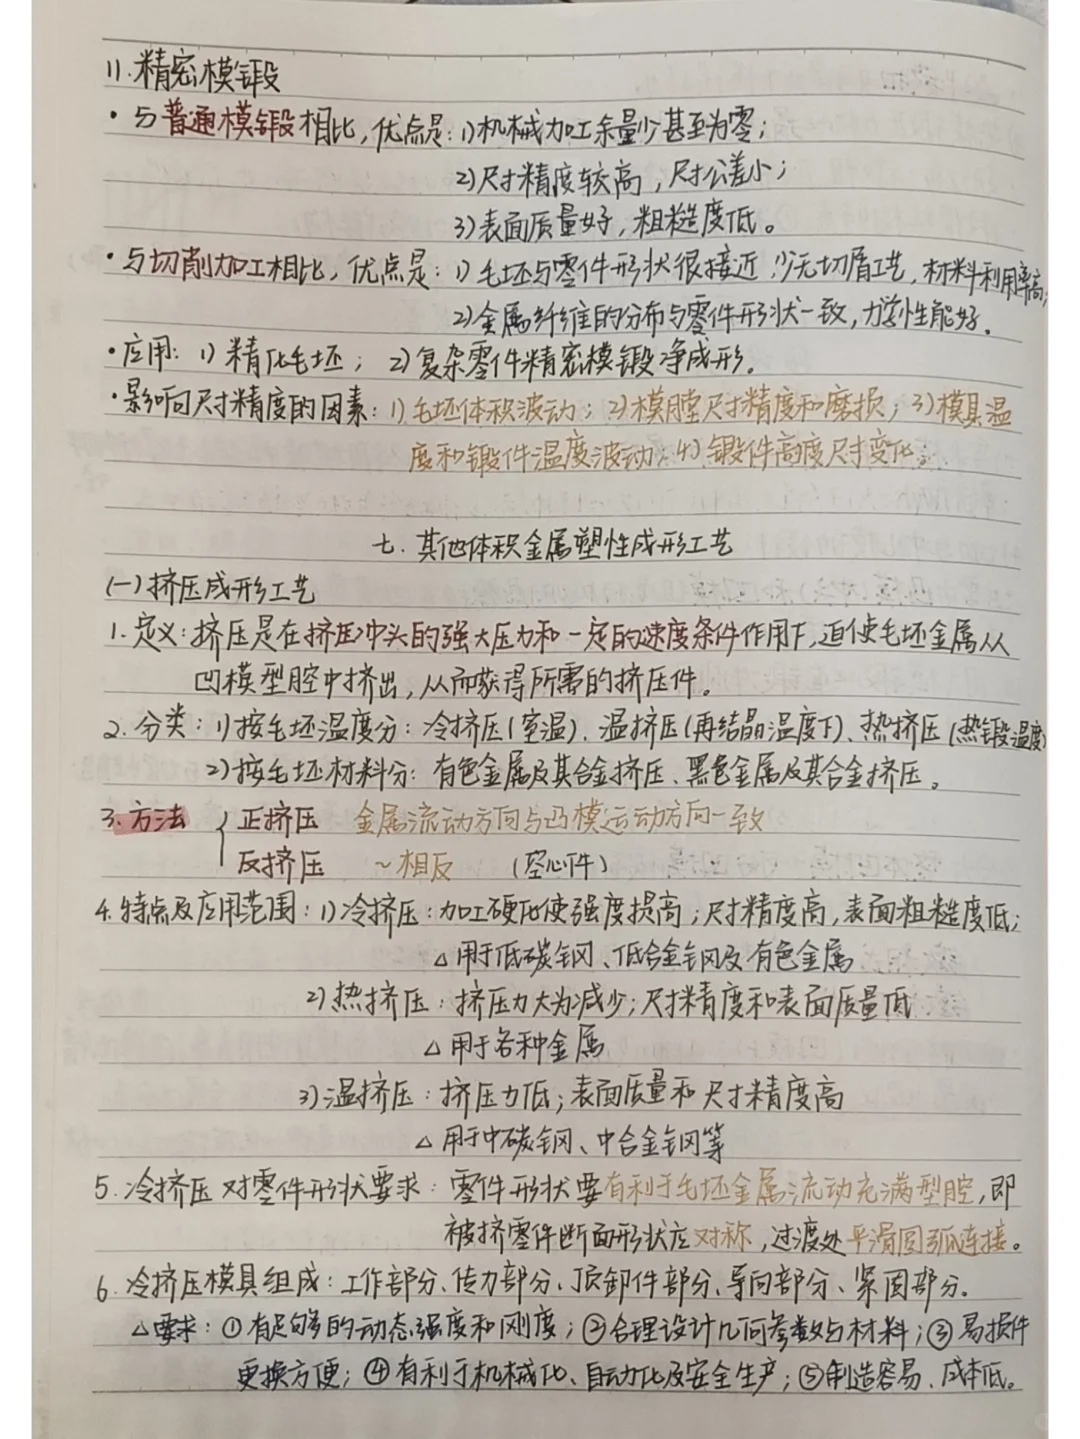 11.精密模锻
·与普通模锻相比,优点是:1)机械加工余量少甚至为零;
2)尺寸精度较高,尺寸公差小;
3)表面质量好,粗糙度低。
·与切削加工相比,优点是:1)毛坯与零件形状很接近,少无切屑工艺,材料利用率高;
2)金属纤维的分布与零件形状一致,力学性能好.
·应用:1)精化毛坯;2)复杂零件精密模锻净成形.
·影响尺寸精度的因素:1)毛坯体积波动;2)模膛尺寸精度和磨损;3)模具温
度和锻件温度波动;4)锻件高度尺寸变化.
七.其他体积金属塑性成形工艺
(一)挤压成形工艺
1.定义:挤压是在挤压冲头的强大压力和一定的速度条件作用下,迫使毛坯金属从
凹模型腔中挤出,从而获得所需的挤压件。
2.分类:1)按毛坯温度分:冷挤压(室温)、温挤压(再结晶温度下)、热挤压(热锻温度)
2)按毛坯材料分:有色金属及其合金挤压、黑色金属及其合金挤压。
3.方法 { 正挤压 金属流动方向与凸模运动方向一致
反挤压 ~相反 (空心件)
4.特点及应用范围:1)冷挤压:加工硬化使强度提高;尺寸精度高,表面粗糙度低;
△用于低碳钢、低合金钢及有色金属
2)热挤压:挤压力大为减少;尺寸精度和表面质量低
△用于各种金属
3)温挤压:挤压力低;表面质量和尺寸精度高
△用于中碳钢、中合金钢等
5.冷挤压对零件形状要求:零件形状要有利于毛坯金属流动充满型腔,即
被挤零件断面形状应对称,过渡处平滑圆弧连接。
6.冷挤压模具组成:工作部分、传力部分、顶卸件部分、导向部分、紧固部分.
△要求:①有足够的动态强度和刚度;②合理设计几何参数与材料;③易损件
更换方便;④有利于机械化、自动化及安全生产;⑤制造容易、成本低。